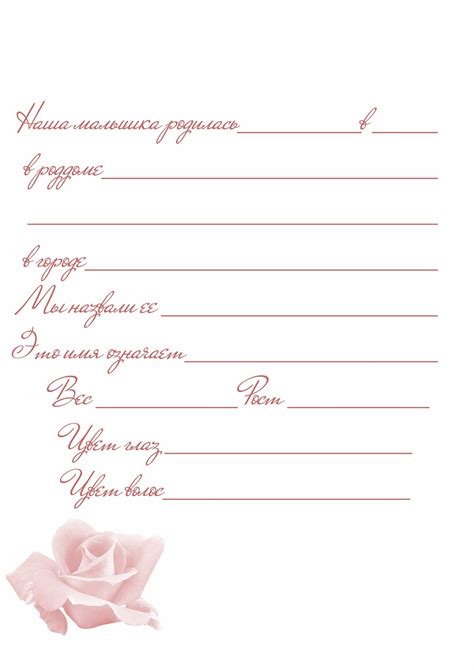 Наша малышка родилась____________в______
в роддоме________________________________
________________________________________
в городе__________________________________
Мы назвали ее___________________________
Это имя означает_________________________
Вес______________Рост______________
Цвет глаз_________________________
Цвет волос_________________________